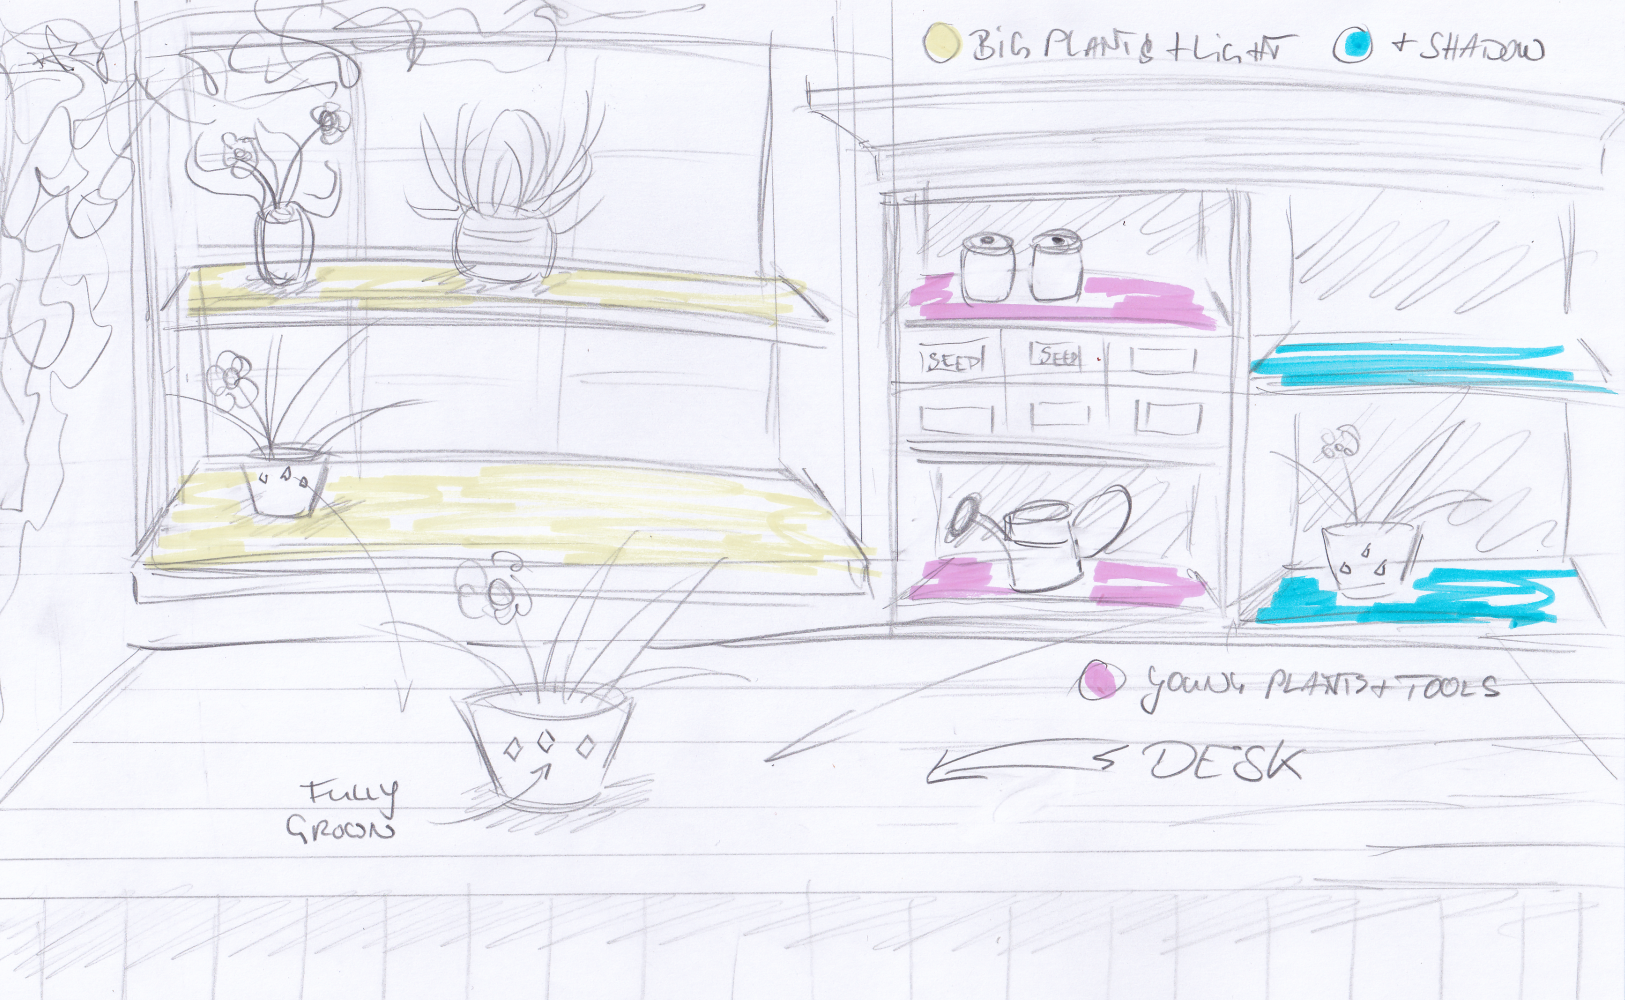 BIG PLANTS + LIGHT
+ SHADOW
SEED
SEED
YOUNG PLANTS + TOOLS
DESK
FULLY
GROWN